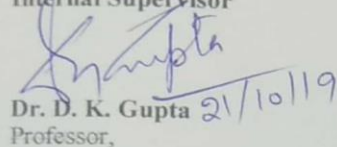 Internal Supervisor
Gupta
Dr. D. K. Gupta 21/10/19
Professor,